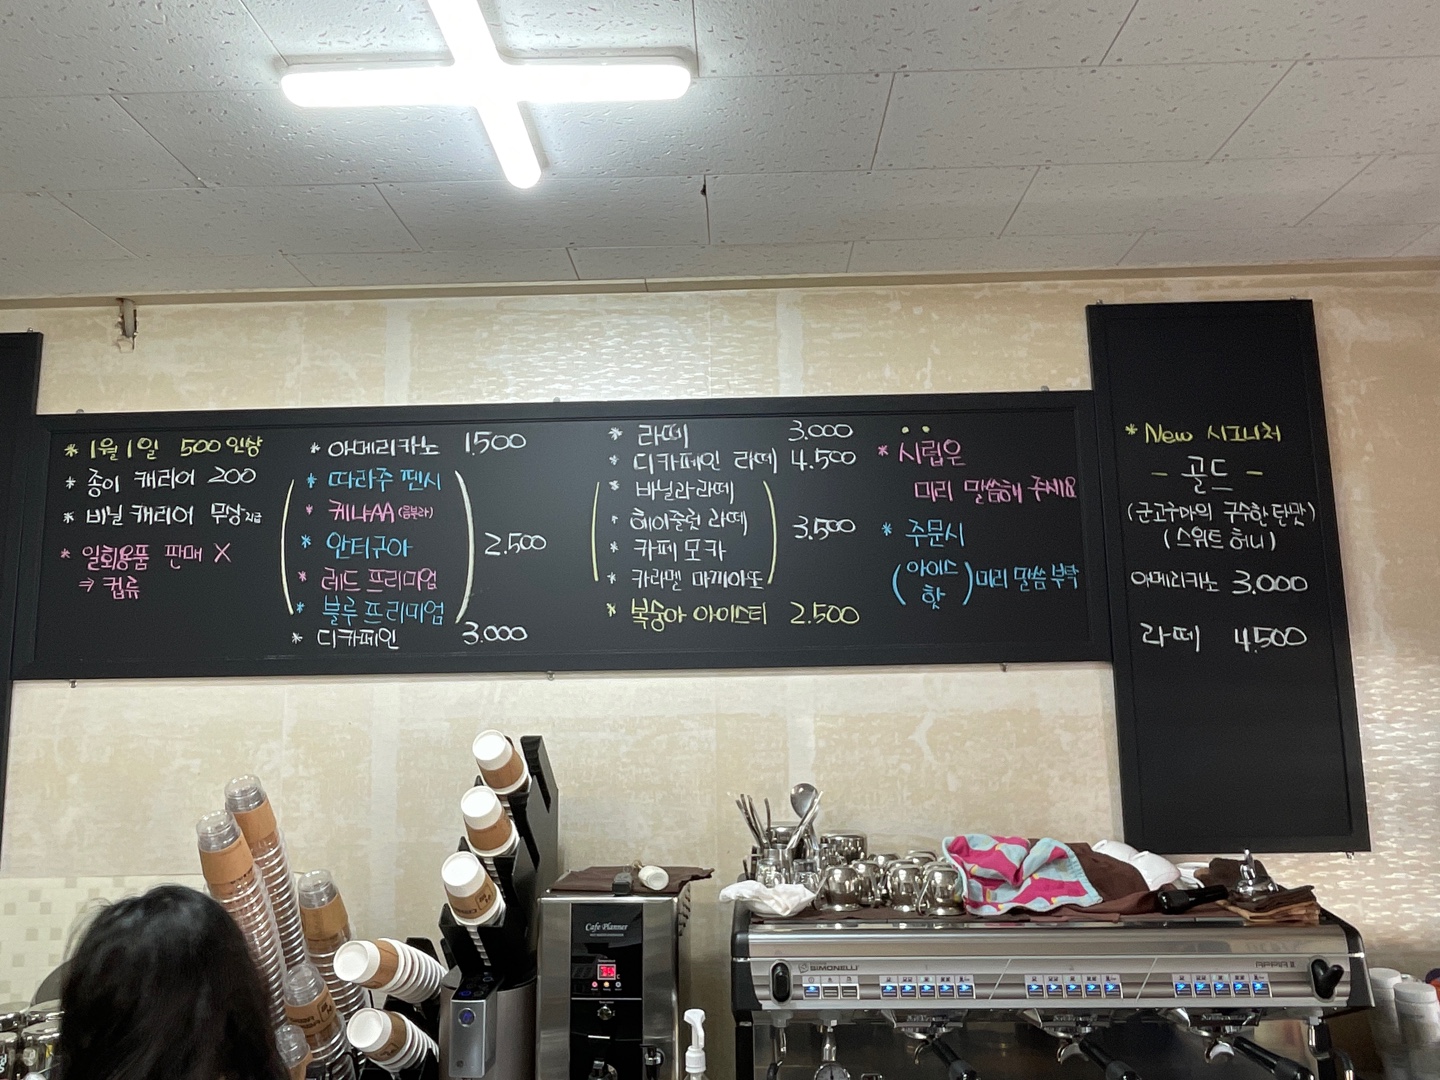 * 1월 1일 500 인상
* 종이 캐리어 200
* 비닐 캐리어 무상지급
* 일회용품 판매 X
⇒ 컵류
* 아메리카노 1.500
* 따라주 펜시
* 케냐AA
* 안티구아
* 레드 프리미엄
* 블루 프리미엄
2.500
* 디카페인 3.000
* 라떼 3.000
* 디카페인 라떼 4.500
* 바닐라라떼
* 헤이즐럿 라떼
* 카페 모카
* 카라멜 마끼아또
3.500
* 복숭아 아이스티 2.500
* 시럽은
미리 말씀해 주세요
* 주문시
(아이스
핫) 미리 말씀 부탁
* New 시그니처
- 골드 -
(군고구마의 구수한 단맛)
(스위트 허니)
아메리카노 3.000
라떼 4.500
Cafe Planner
SIMONELLI